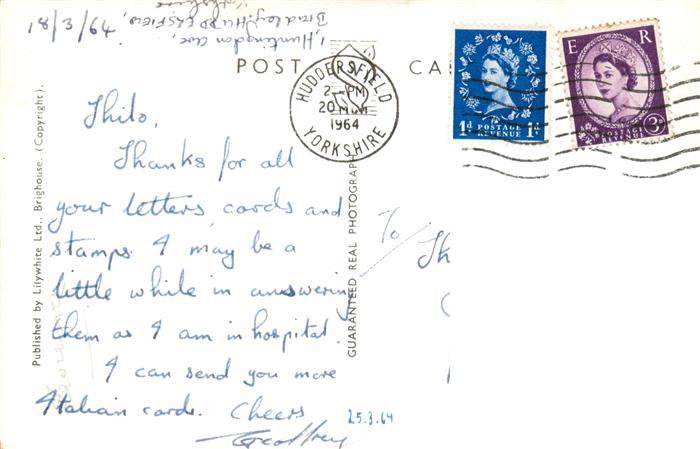 1, Huntingdon Ave,
Bradley, HUDDERSFIELD,
Yorkshire
POST CA
HUDDERSFIELD
2 - PM
20 MCH
1964
YORKSHIRE
1d POSTAGE 1d
REVENUE
E R
POSTAGE 3D
REVENUE
Published by Lilywhite Ltd., Brighouse. (Copyright).
GUARANTEED REAL PHOTOGRAPH
Thilo,
Thanks for all
your letters, cards and
stamps. I may be a
little while in answering
them as I am in hospital.
I can send you more
Italian cards. Cheers
Geoffrey
25.3.64
To